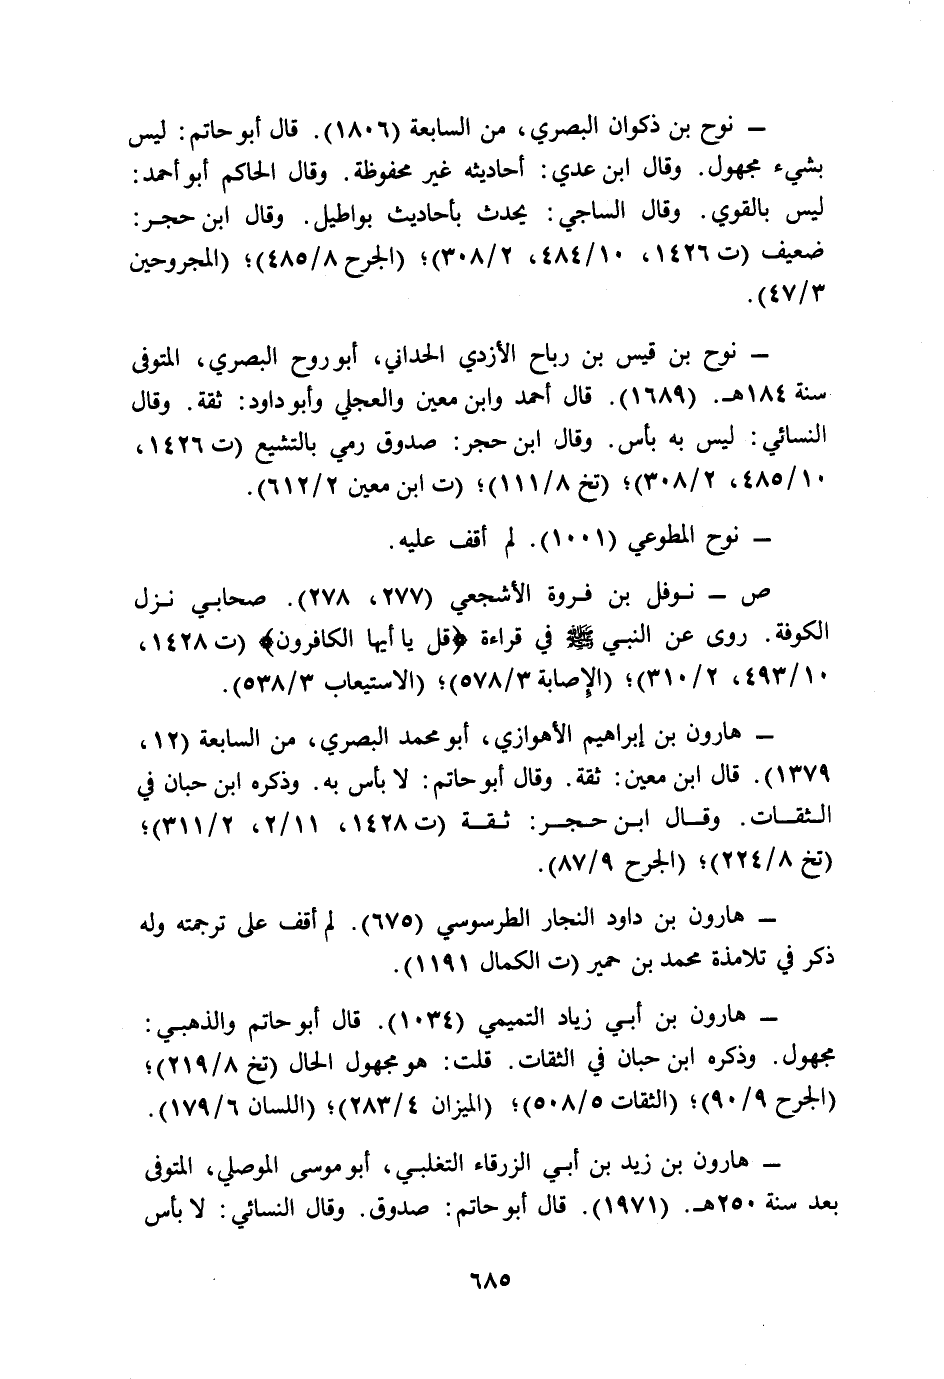 — نوح بن ذكوان البصري، من السابعة (١٨٠٦). قال أبو حاتم: ليس
بشيء مجهول. وقال ابن عدي: أحاديثه غير محفوظة. وقال الحاكم أبو أحمد:
ليس بالقوي. وقال الساجي: يحدث بأحاديث بواطيل. وقال ابن حجر:
ضعيف (ت ١٤٢٦، ٤٨٤/١٠، ٣٠٨/٢)؛ (الجرح ٤٨٥/٨)؛ (المجروحين
٤٧/٣).
— نوح بن قيس بن رباح الأزدي الحداني، أبو روح البصري، المتوفى
سنة ١٨٤هـ. (١٦٨٩). قال أحمد وابن معين والعجلي وأبو داود: ثقة. وقال
النسائي: ليس به بأس. وقال ابن حجر: صدوق رمي بالتشيع (ت ١٤٢٦،
٤٨٥/١٠، ٣٠٨/٢)؛ (تخ ١١١/٨)؛ (ت ابن معين ٦١٢/٢).
— نوح المطوعي (١٠٠١). لم أقف عليه.
ص — نوفل بن فروة الأشجعي (٢٧٧، ٢٧٨). صحابي نزل
الكوفة. روى عن النبي ﷺ في قراءة ﴿قل يا أيها الكافرون﴾ (ت ١٤٢٨،
٤٩٣/١٠، ٣١٠/٢)؛ (الإصابة ٥٧٨/٣)؛ (الاستيعاب ٥٣٨/٣).
— هارون بن إبراهيم الأهوازي، أبو محمد البصري، من السابعة (١٢،
١٣٧٩). قال ابن معين: ثقة. وقال أبو حاتم: لا بأس به. وذكره ابن حبان في
الثقات. وقال ابن حجر: ثقة (ت ١٤٢٨، ٢/١١، ٣١١/٢)؛
(تخ ٢٢٤/٨)؛ (الجرح ٨٧/٩).
— هارون بن داود النجار الطرسوسي (٦٧٥). لم أقف على ترجمته وله
ذكر في تلامذة محمد بن حمير (ت الكمال ١١٩١).
— هارون بن أبي زياد التميمي (١٠٣٤). قال أبو حاتم والذهبي:
مجهول. وذكره ابن حبان في الثقات. قلت: هو مجهول الحال (تخ ٢١٩/٨)؛
(الجرح ٩٠/٩)؛ (الثقات ٥٠٨/٥)؛ (الميزان ٢٨٣/٤)؛ (اللسان ١٧٩/٦).
— هارون بن زيد بن أبي الزرقاء التغلبي، أبو موسى الموصلي، المتوفى
بعد سنة ٢٥٠هـ. (١٩٧١). قال أبو حاتم: صدوق. وقال النسائي: لا بأس
٦٨٥